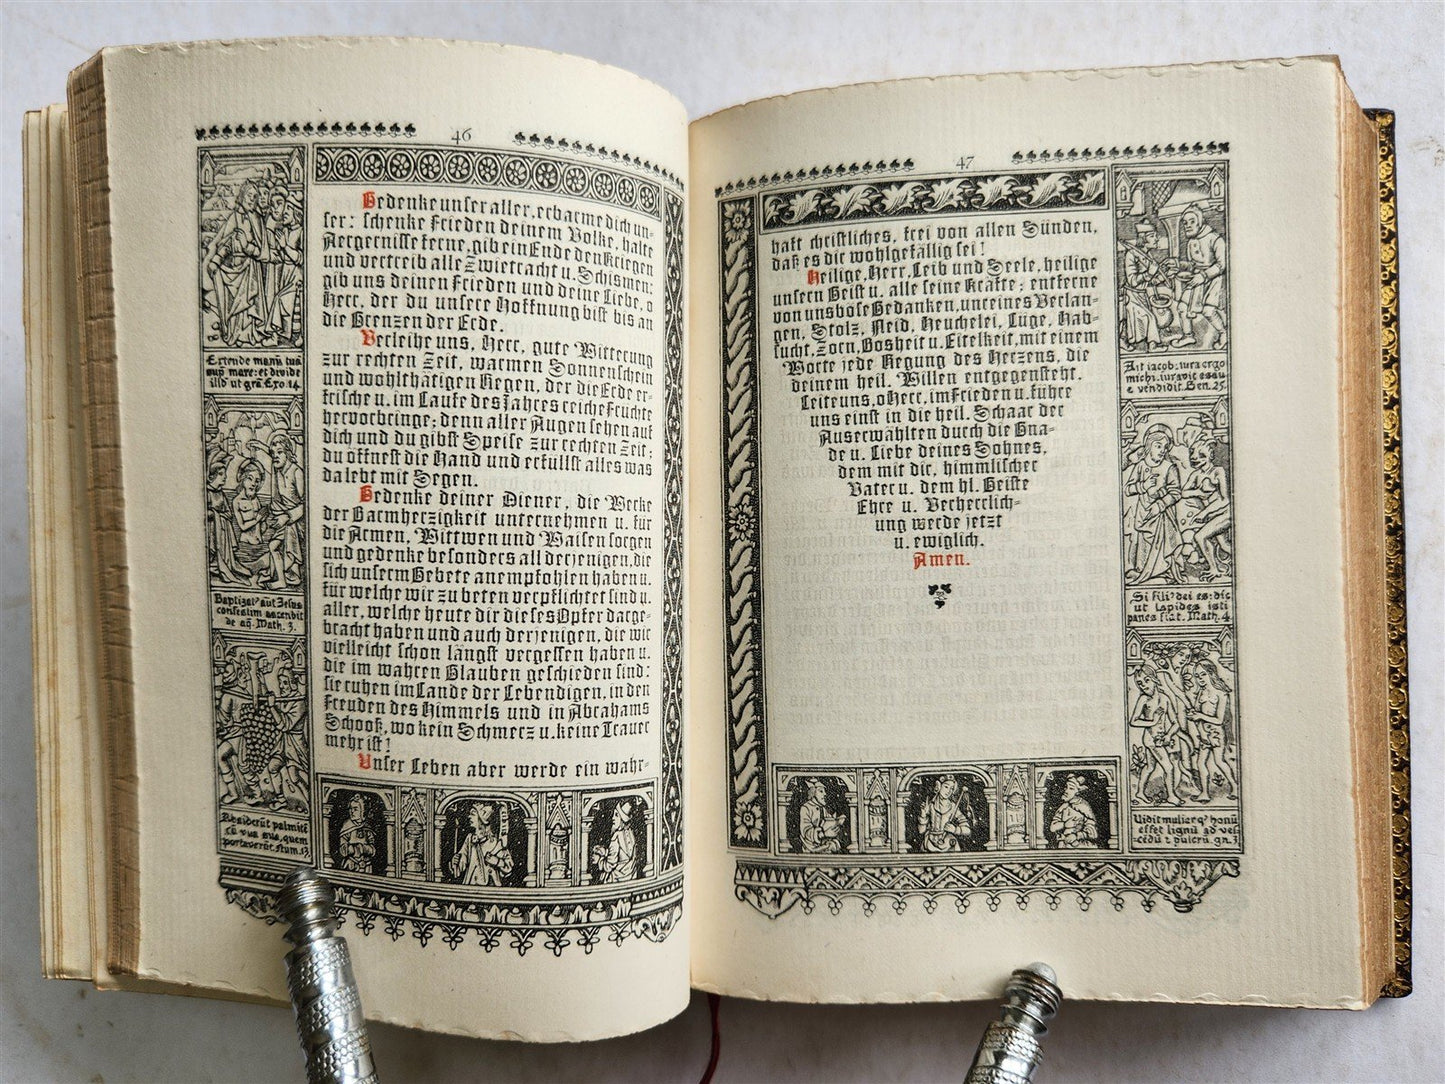 46
Gedenke unser aller, erbarme dich un-
ser: schenke Frieden deinem Volke, halte
Aergernisse ferne, gib ein Ende den Kriegen
und vertreib alle Zwietracht u. Schismen:
gib uns deinen Frieden und deine Liebe, o
Herr, der du unsere Hoffnung bist bis an
die Grenzen der Erde.
Verleihe uns, Herr, gute Witterung
zur rechten Zeit, warmen Sonnenschein
und wohlthätigen Regen, der die Erde er-
frische u. im Laufe des Jahres reiche Früchte
hervorbringe; denn aller Augen sehen auf
dich und du gibst Speise zur rechten Zeit;
du öffnest die Hand und erfüllst alles was
da lebt mit Segen.
Gedenke deiner Diener, die Werke
der Barmherzigkeit unternehmen u. für
die Armen, Wittwen und Waisen sorgen
und gedenke besonders all derjenigen, die
sich unserm Gebete anempfohlen haben u.
für welche wir zu beten verpflichtet sind u.
aller, welche heute dir dieses Opfer darge-
bracht haben und auch derjenigen, die wir
vielleicht schon längst vergessen haben u.
die im wahren Glauben geschieden sind:
sie ruhen im Lande der Lebendigen, in den
Freuden des Himmels und in Abrahams
Schooß, wo kein Schmerz u. keine Trauer
mehr ist!
Unser Leben aber werde ein wahr-
Extende manū tuā
sup mare: et divide
illd ut grā. Exo. 14
Baptizat' aut Jesus
confestim ascendit
de aq. Math. 3.
Absiderūt palmitē
cū vua sua, quem
portaverūt. Num. 13
47
haft christliches, frei von allen Sünden,
daß es dir wohlgefällig sei!
Heilige, Herr, Leib und Seele, heilige
unsern Geist u. alle seine Kräfte; entferne
von uns böse Gedanken, unreines Verlan-
gen, Stolz, Neid, Heuchelei, Lüge, Hab-
sucht, Zorn, Bosheit u. Eitelkeit, mit einem
Worte jede Regung des Herzens, die
deinem heil. Willen entgegensteht.
Leite uns, o Herr, im Frieden u. führe
uns einst in die heil. Schaar der
Auserwählten durch die Gna-
de u. Liebe deines Sohnes,
dem mit dir, himmlischer
Vater u. dem hl. Geiste
Ehre u. Verherrlich-
ung werde jetzt
u. ewiglich.
Amen.
Ait iacob: iura ergo
michi. iuravit esau
e vendidit. Gen. 25.
Si fili' dei es: dic
ut lapides isti
panes fiāt. Math. 4.
Vidit mulier q' bonū
esset lignū ad ves
cēdū z pulcrū gn. 3.